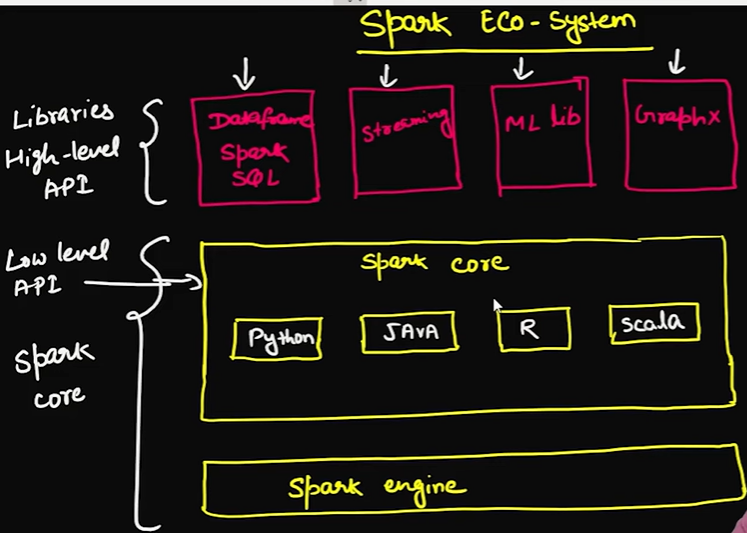 Spark Eco-System
Libraries
High-level
API
Dataframe
Spark
SQL
Streaming
ML lib
GraphX
Low level
API
Spark
core
Spark core
Python
JAVA
R
Scala
Spark engine